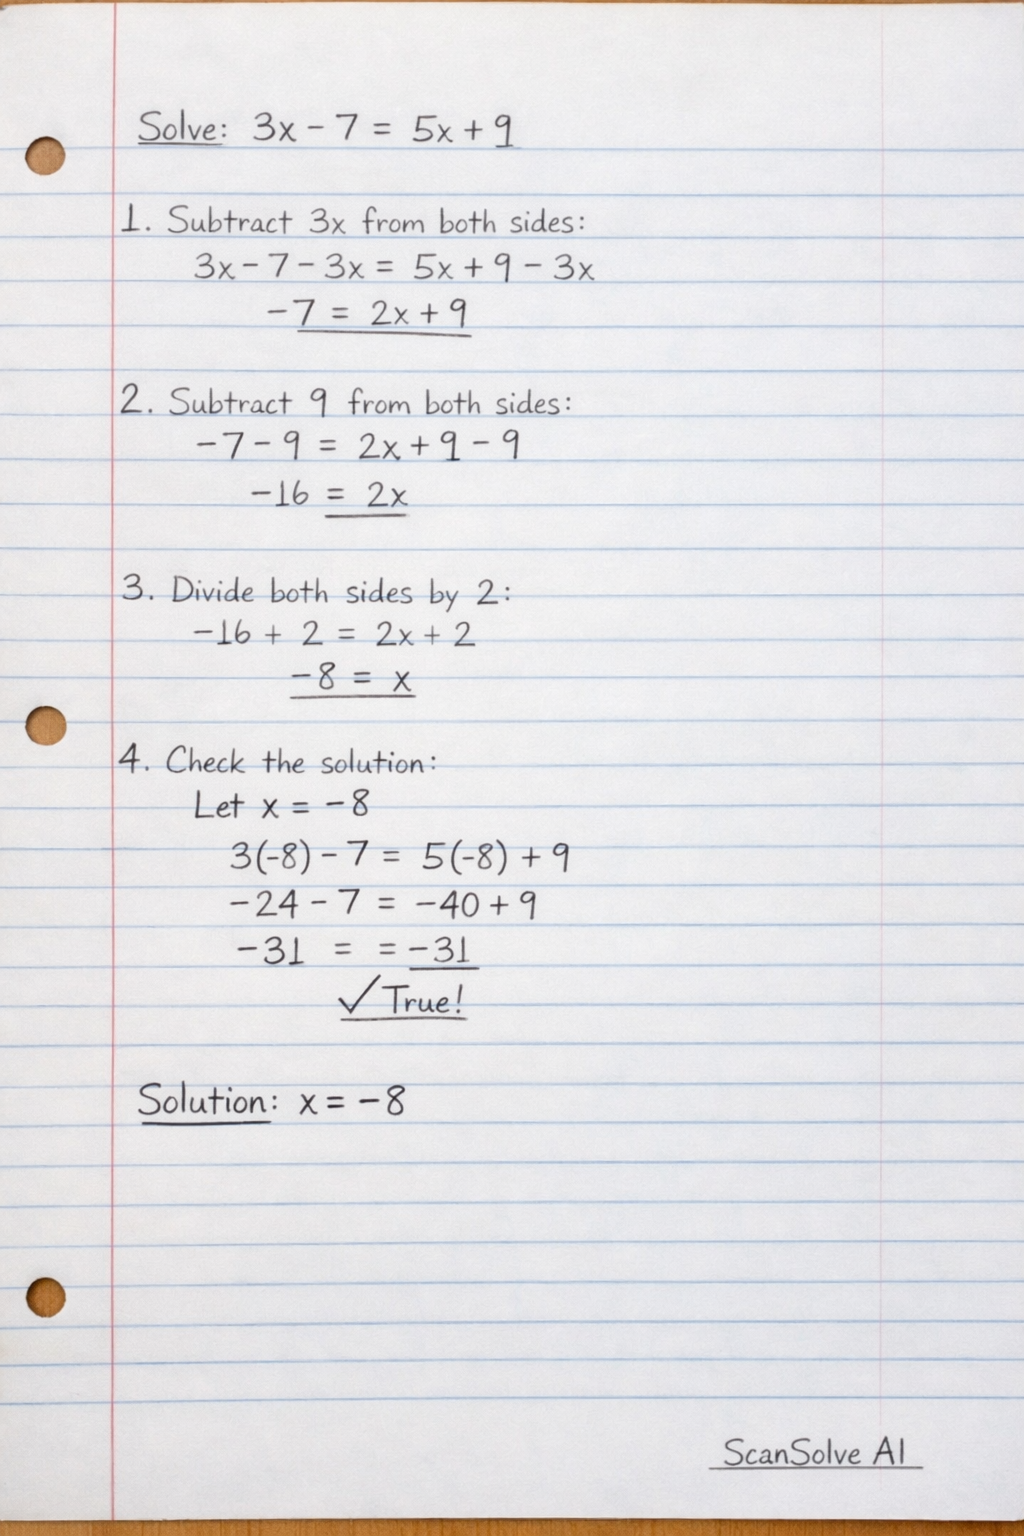 Solve: 3x - 7 = 5x + 9
1. Subtract 3x from both sides:
3x - 7 - 3x = 5x + 9 - 3x
-7 = 2x + 9
2. Subtract 9 from both sides:
-7 - 9 = 2x + 9 - 9
-16 = 2x
3. Divide both sides by 2:
-16 + 2 = 2x + 2
-8 = x
4. Check the solution:
Let x = -8
3(-8) - 7 = 5(-8) + 9
-24 - 7 = -40 + 9
-31 = = -31
✓ True!
Solution: x = -8
ScanSolve AI